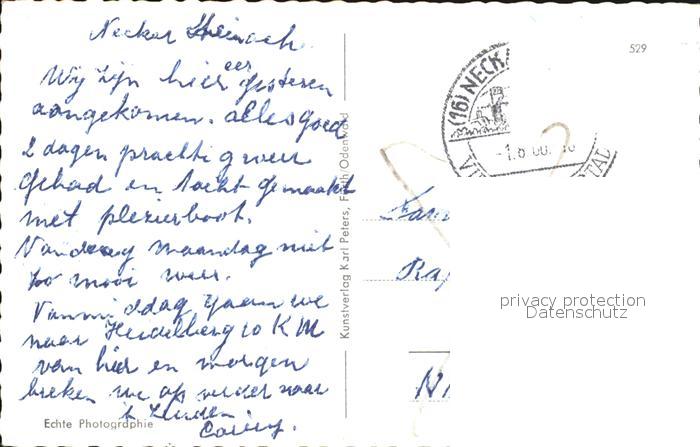 Neckar Steinach.
Wij zijn hier eer gisteren
aangekomen. alles goed
2 dagen prachtig weer
gehad en tocht gemaakt
met plezierboot.
Vandaag maandag niet
zoo mooi weer.
Vanmiddag gaan we
naar Heidelberg 10 KM
van hier en morgen
breken we op verder naar
't Zuiden.
Echte Photographie
Kunstverlag Karl Peters, Fürth/Odenwald
529
(16) NECK
-1.8.60.
VIE
STADT
Fam
Ra
privacy protection
Datenschutz